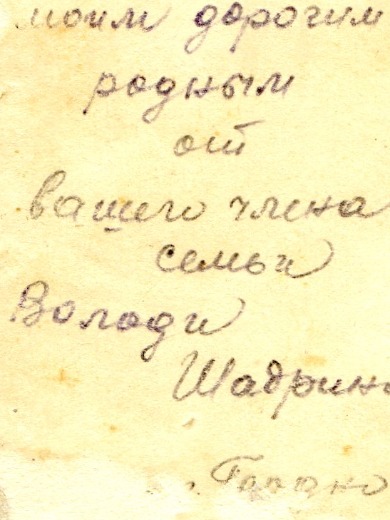 моим дорогим
родным
от
вашего члена
семьи
Володи
Шадрин